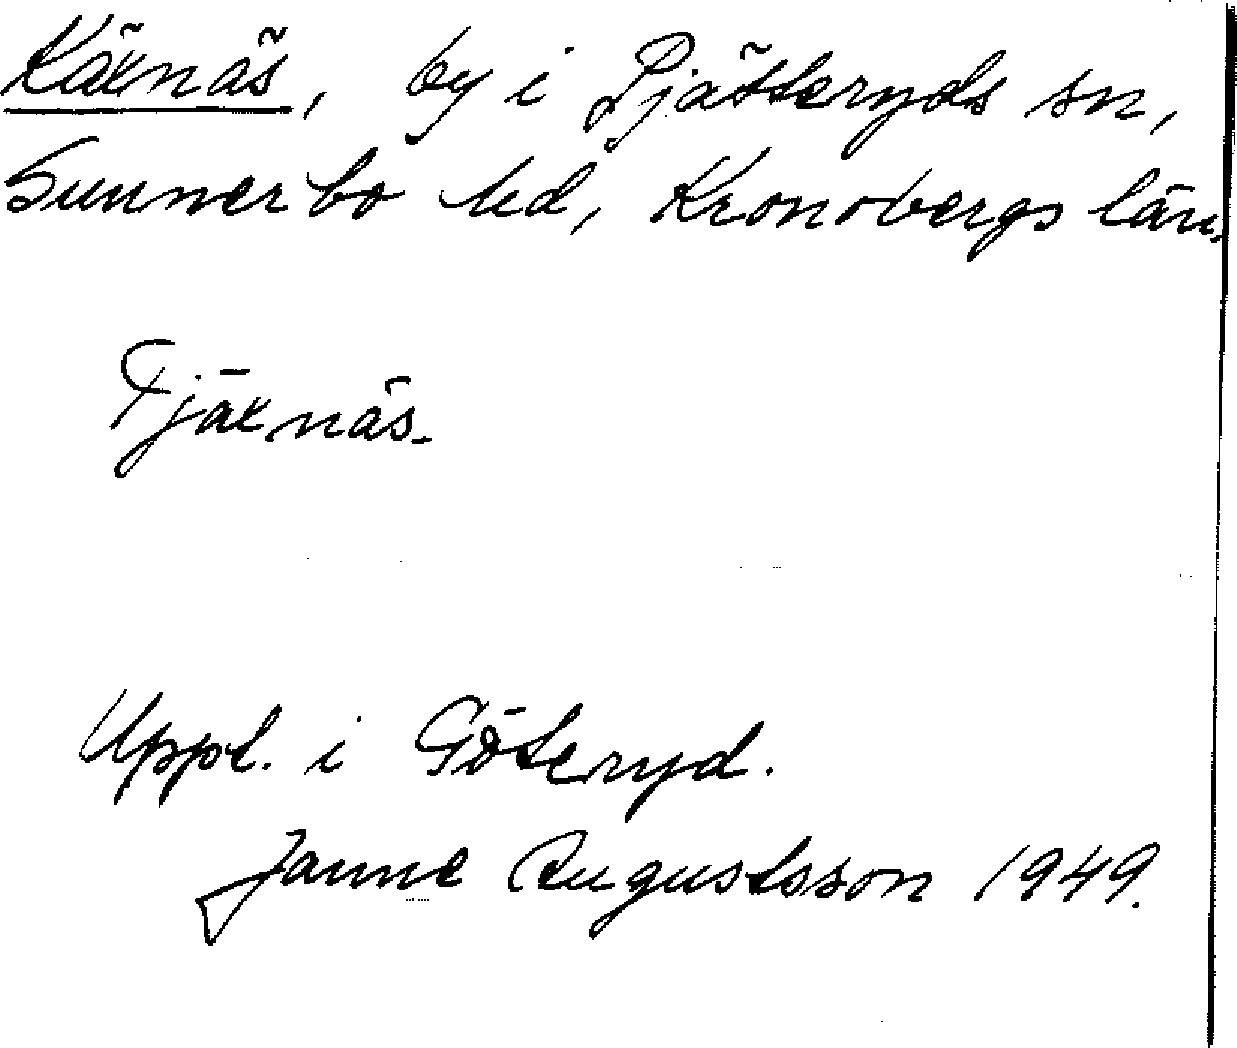 Käxnäs, by i Pjätteryds sn,
Sunnerbo hd, Kronobergs län.
Tjäxnäs.
Uppt. i Göteryd.
Janne Augustsson 1949.